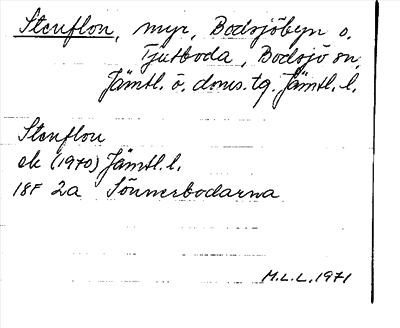 Stenflon, myr, Bodsjöbyn o.
Tjutboda, Bodsjö sn,
Jämtl. ö. doms. tg. Jämtl. l.
Stenflon
ek (1970) Jämtl. l.
18F 2a Sönnerbodarna
M.L.L. 1971